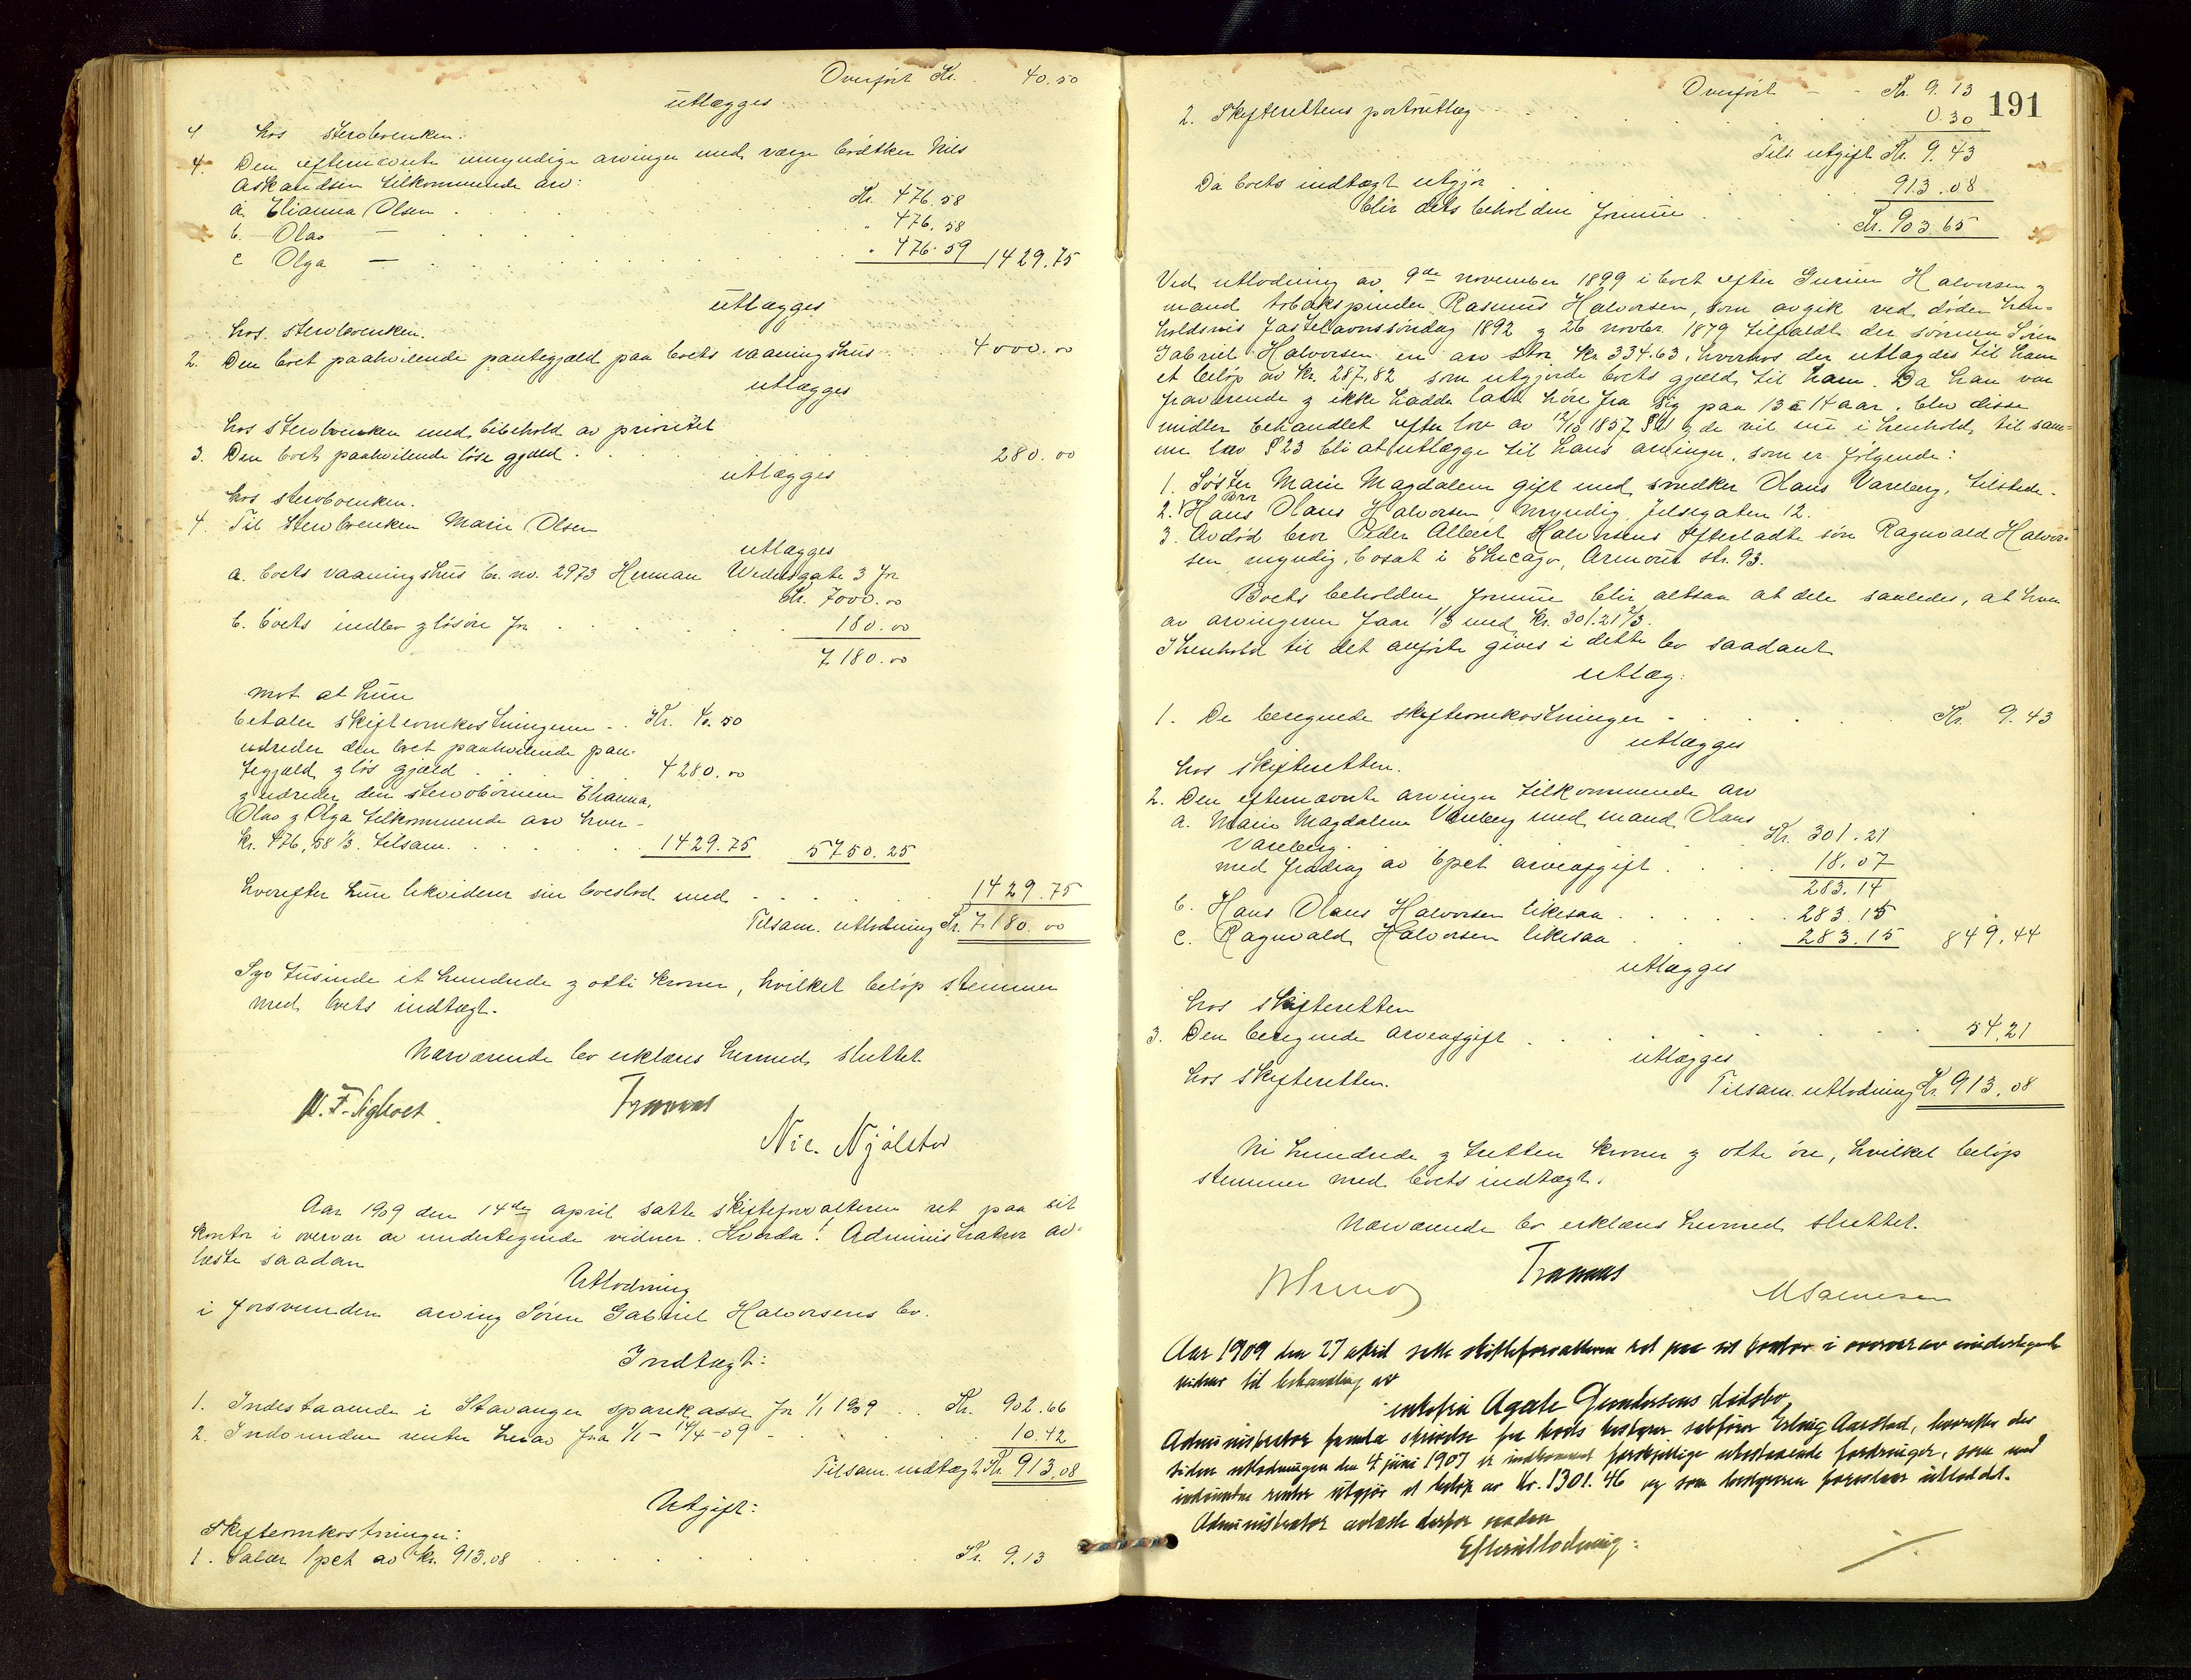 Overført Kr. 40.50
utlægges
hos stervboenken.
4. Den efternævnte umyndige arvinger med værge bødtker Nils
Askandsen tilkommende arv:
a. Elianna Olsen . Kr. 476.58
b. Olav — . . " 476.58
c Olga — . . " 476.59 1429.75
utlægges
hos stervboenken.
2. Den boet paahvilende pantegjæld paa boets vaaningshus 4000.00
utlægges
hos stervboenken med bibehold av prioritet
3. Den boet paahvilende løse gjæld . 280.00
utlægges
hos stervboenken.
4. Til stervboenken Marie Olsen
utlægges
a. boets vaaningshus br. no. 2973 Herman Wedelsgate 3 for
Kr. 7000.00
b. boets indbo & løsøre for . . 180.00
7180.00
mot at hun
betaler skifteomkostningerne .. Kr. 40.50
udreder den boet paahvilende pan-
tegjæld & løs gjæld . . 4280.00
& udreder den stervbørnene Elianna,
Olav & Olga tilkommende arv hver -
kr. 476,58 1/3. tilsam. . . 1429.75 5750.25
hvorefter hun likviderer sin boeslod med . . 1429.75
Tilsam. utlodning Kr. 7180.00
Syv tusinde et hundrede & otti kroner, hvilket beløp stemmer
med boets indtægt.
Nærværende bo erklæres hermed sluttet.
Nic. Njølstad
Aar 1909 den 14de april satte skifteforvalteren ret paa sit
kontor i overvær av undertegnede vidner. Hvorda! Administrator av-
læste saadan
Utlodning
i forsvunden arving Søren Gabriel Halvorsens bo.
Indtægt:
1. Indestaaende i Stavanger sparekasse for 1/1 1909 .. Kr. 902.66
2. Indvundne renter herav fra 1/1 - 14/4 - 09 - . 10.42
Tilsam. indtægt Kr 913.08
Utgift:
Skifteomkostninger:
1. Salær 1 pct av kr. 913.08 . . Kr. 9.13
191
Overført - - Kr. 9.13
2. Skifterettens portoutlæg . . 0.30
Tils. utgift Kr. 9.43
Da boets indtægt utgjør . . 913.08
blir dets beholdne formue . . Kr. 903.65
Ved utlodning av 9de november 1899 i boet efter Gurine Halvorsen &
mand tobakspinder Rasmus Halvorsen, som avgik ved døden hen-
holdsvis fastelavnssøndag 1892 & 26 novbr. 1879 tilfaldt der sønnen Søren
Gabriel Halvorsen en arv stor kr. 334.63, hvorhos der utlagdes til ham
et beløp av kr. 287,82 som utgjorde boets gjæld til ham. Da han var
fraværende & ikke hadde latt høre fra sig paa 13 à 14 aar, blev disse
midler behandlet efter lov av 12/10 1857 & de vil nu i henhold til sam-
me lov § 23 bli at utlægge til hans arvinger, som er følgende:
1. Søster Marie Magdalene gift med snedker Olaus Vareberg, tilstede.
2. Bror Hans Olaus Halvorsen myndig, Jelsegaten 12.
3. Avdød bror Peder Albert Halvorsens efterladte søn Ragnvald Halvor-
sen, myndig, bosat i Chicago, Armour str. 93.
Boets beholdne formue blir altsaa at dele saaledes, at hver
av arvingerne faar 1/3 med Kr. 301.21 2/3.
I henhold til det anførte gives i dette bo saadant
utlæg:
1. De beregnede skifteomkostninger . . Kr. 9.43
utlægges
hos skifteretten.
2. Den efternævnte arvinger tilkommende arv
a. Marie Magdalene Vareberg med mand Olaus
Vareberg. Kr. 301.21
med fradrag av 6 pct arveafgift . . 18.07
283.14
b. Hans Olaus Halvorsen likesaa . . 283.15
c. Ragnvald Halvorsen likesaa . . 283.15 849.44
utlægges
hos skifteretten
3. Den beregnede arveafgift . . 54.21
utlægges
hos skifteretten.
Tilsam. utlodning Kr. 913.08
Ni hundrede & tretten kroner & otte øre, hvilket beløp
stemmer med boets indtægt.
Nærværende bo erklæres hermed sluttet.
Aar 1909 den 27 april satte skifteforvalteren ret paa sit kontor i overvær av undertegnede
vidner til behandling av
enkefru Agate Gundersens dødsbo
Administrator fremla skrivelse fra boets bestyrer sakfører Erling Aarstad, hvorefter der
siden utlodningen den 4 juni 1907 er indkommet forskjellige utestaaende fordringer, som med
indvundne renter utgjør et beløp av kr. 1301.46 og som bestyreren foreslaar utloddet.
Administrator avlæste derfor saadan
Efterutlodning: